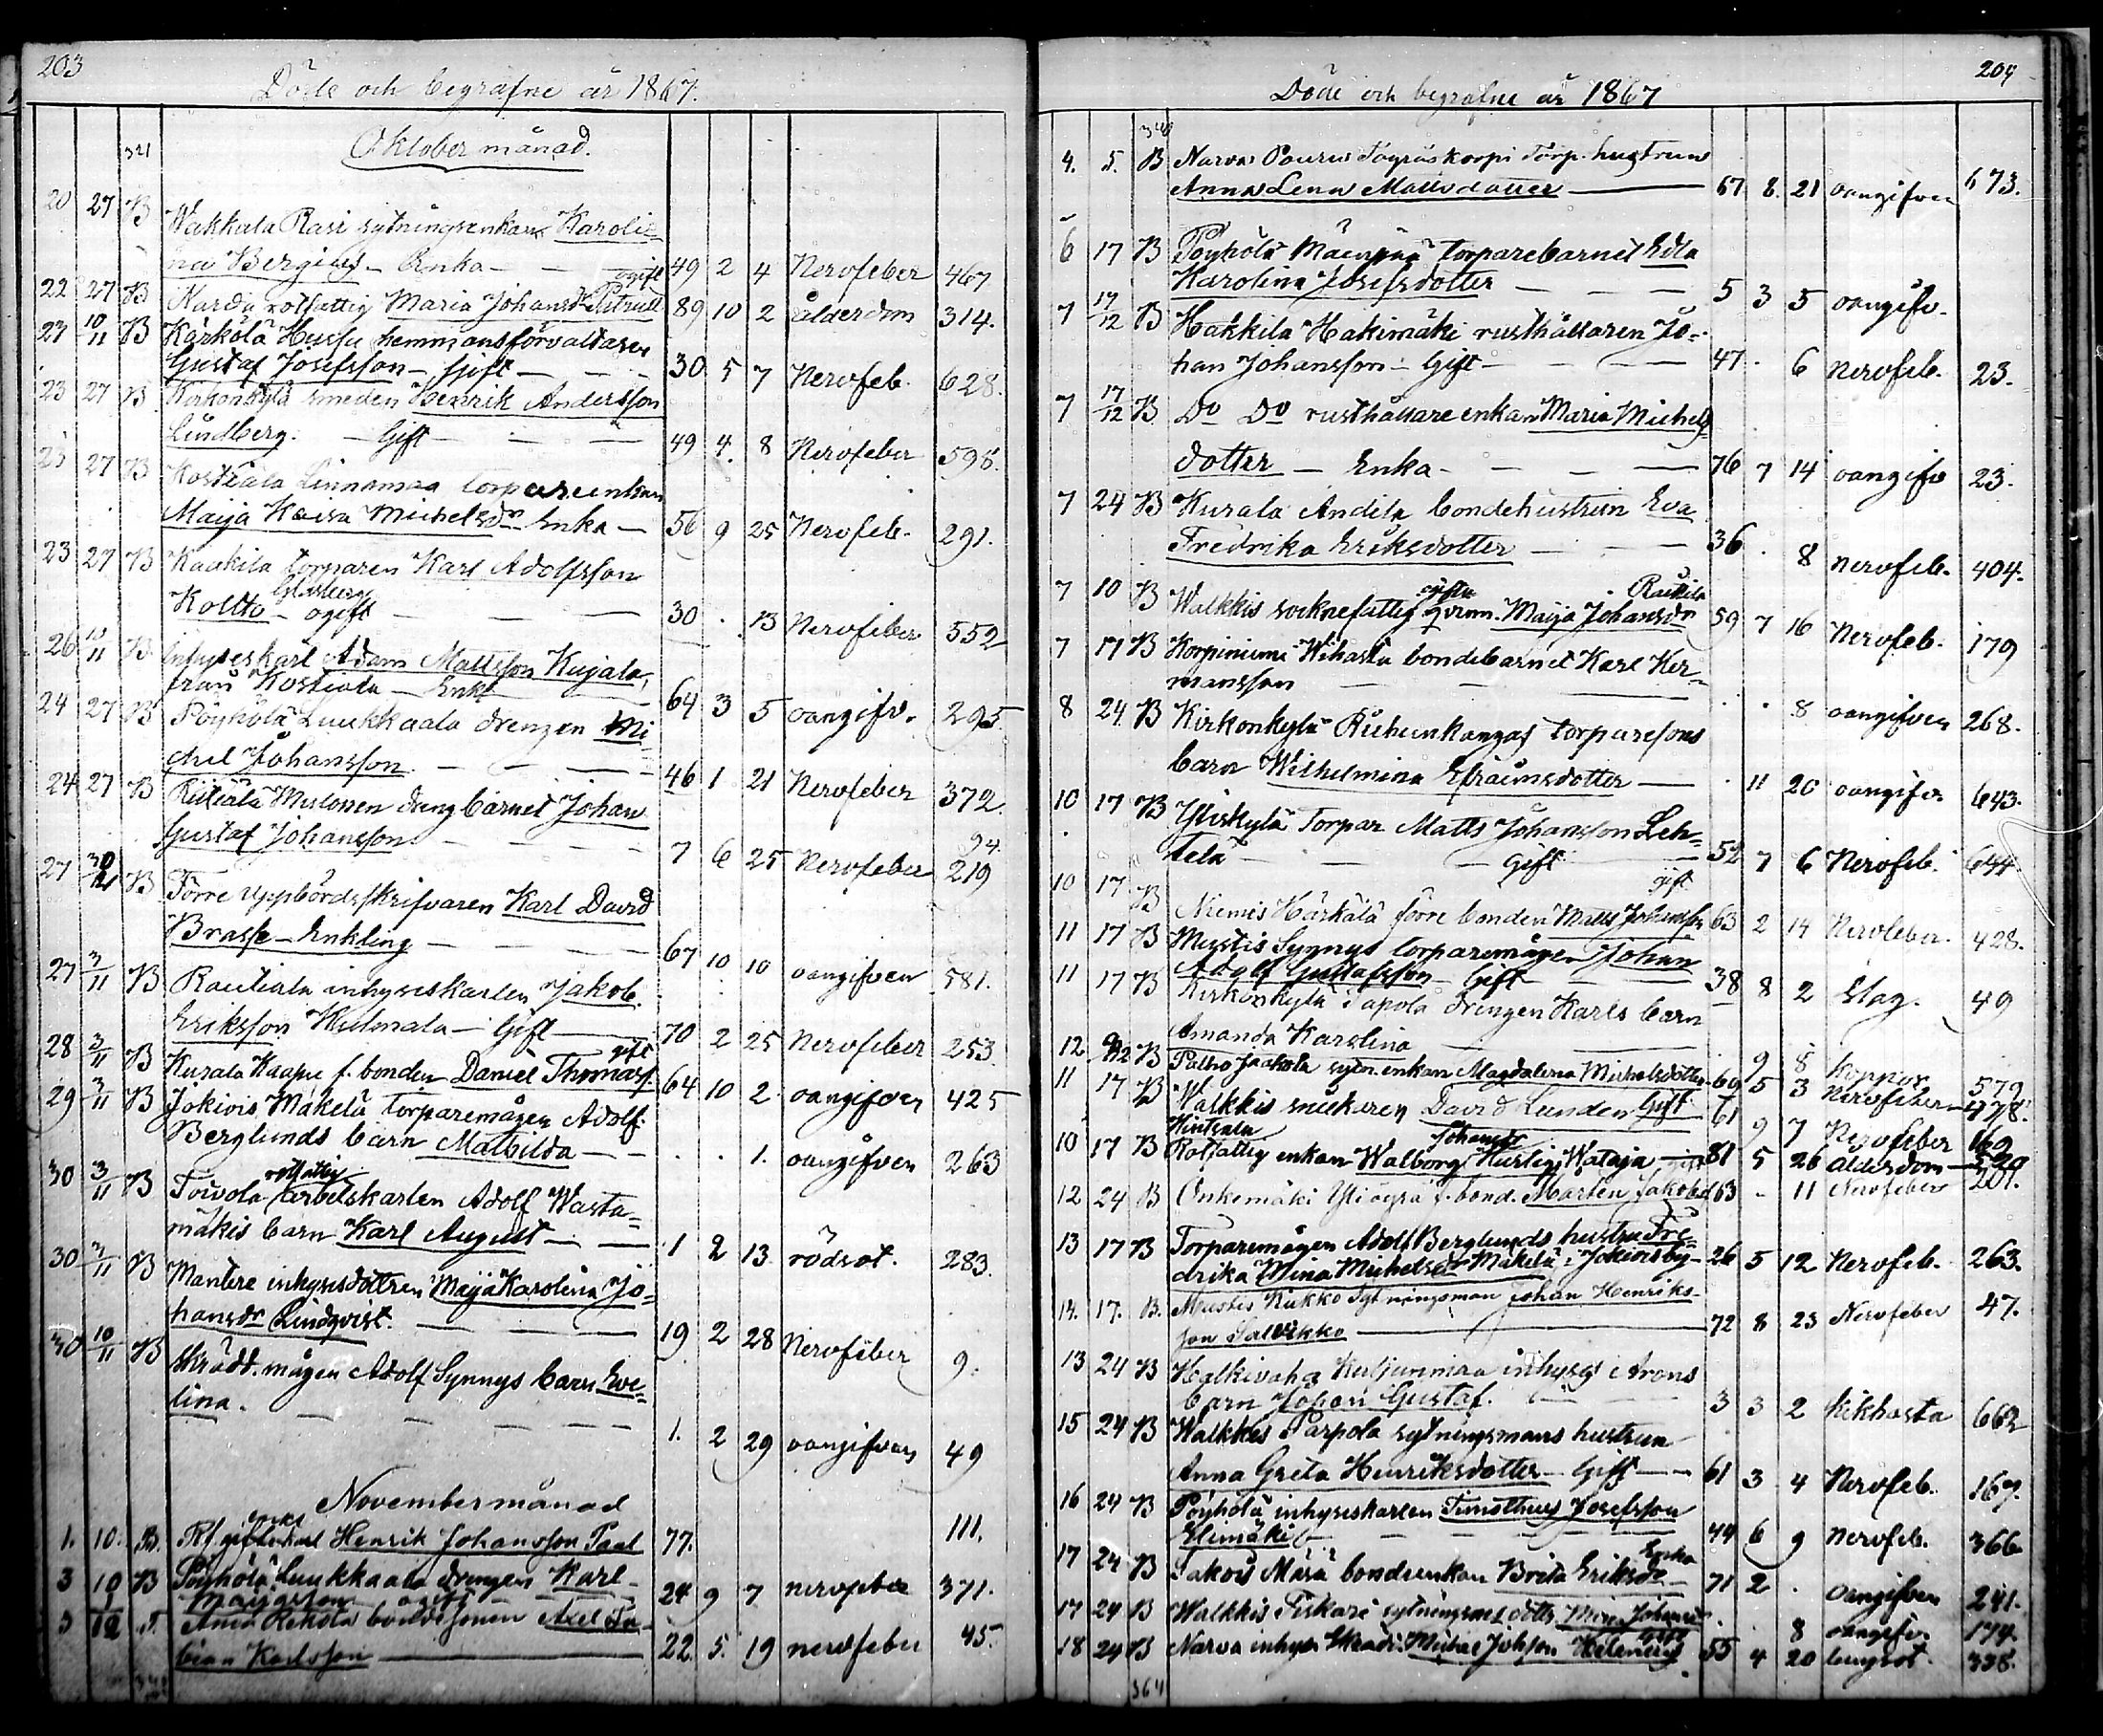 203
Döde och begrafne år 1867.
321 Oktober månad.
20 27 B Wakkala Rasi sytningsenkan Karoli=
na Bergius - Enka - 49 2 4 Nervfeber 467
ogift
22 27 B Narda rotfattig Maria Johansd. 89 10 2 ålderdom 314.
27 10/11 B Kärkölä Heussu hemmansförvaltaren
Gustaf Josefsson - Gift - 30 5 7 Nervfeb. 628.
23 27 B Kirkonkylä smeden Henrik Andersson
Lindberg. - Gift - 49 4. 8 Nervfeber 598.
23 27 B Kostiala Linnamaa torpareenkan
Maija Kaisa Michelsdn Enka - 56 9 25 Nervfeb. 291.
23 27 B Kaakila torparen Karl Adolfsson
Kollto - ogift - 30 . 13 Nervfeber 552
26 10/11 B Inhyseskarl Adam Mattsson Kujala,
från Kostiala - Enkl 64 3 5 oangifv. 295.
24 27 B Pöyhölä Luukkaala drengen Mi=
chel Johansson. - 46 1 21 Nervfeber 372.
24 27 B Riitiälä Mustonen drengbarnet Johan
Gustaf Johansson 7 6 25 Nervfeber 94. 219
27 B Förre uppbördsskrifvaren Karl David
Brasse - Enkling - 67 10 10 oangifven 581.
27 3/11 B Rautiala inhyseskarlen Jakob
Eriksson Huhmala - Gift - 70 2 25 Nervfeber 253
gift
28 3/11 B Kurala Kaapu f. bonden Daniel Thomass. 64 10 2 oangifven 425
29 3/11 B Jokiois Mäkelä torparemågen Adolf
Berglunds barn Mathilda - . . 1. oangifven 263
rotfattig
30 3/11 B Toivola arbetskarlen Adolf Wasta=
mäkis barn Karl August - 1 2 13. rödsot. 283.
30 3/11 B Mantere inhysesdottren Maija Karolina Jo=
hansdr Lindqvist. 19 2 28 Nervfeber 9.
30 10/11 B Skrädd. mågen Adolf Synnys barn Eve=
lina. - 1. 2 29 oangifven 49
November månad
1. 10. B. Rf. Henrik Johansson Paal 77. 111.
3 10 B Pöyhölä Luukkaala drengen Karl
24 9 7 nervfeber 371.
3 1/12 Rekola bondesonen Axel Fa=
bian Karlsson 22 5. 19 nervfeber 45.
204
Döde och begrafne år 1867
4. 5. B Narva Torp. hustrun
Anna Lena Mattsdotter 67 8. 21 oangifven 673.
6 17 B Pöyhölä Mäenpää torparebarnet Edla
Karolina Josefsdotter - 5 3 5 oangifv.
7 17/12 B Hakkila Hakimäki rusthållaren Jo=
han Johansson - Gift - 47 . 6 Nervfeb. 23.
7 17/12 B Do Do rusthållareenkan Maria Michels
dotter - Enka - 76 7 14 oangifv 23.
7 24 B Kurala Andila bondehustrun Eva
Fredrika Eriksdotter 36 . 8 nervfeb. 404.
gifta
7 10 B Walkkis socknefattig qvinn. Maija Johansdn 59 7 16 Nervfeb. 179
7 17 B Korpiniemi Wihasta bondebarnet Karl Her=
mansson - . . 8 oangifven 268.
8 24 B Kirkonkylä Riihenkangas torparesons
barn Wilhelmina Efraimsdotter . 11 20 oangifv. 643.
10 17 B Yliskylä Torpar Matts Johansson Leh=
telä - Gift 52 7 6 Nervfeb. 644.
gift
10 17 B Niemis Härkälä förre bonden Matts Johansson 63 2 14 Nervfeber. 428.
11 17 B Mustis Synnys torparemågen Johan
Adolf Gustafsson - Gift - 38 8 2 Slag. 49
11 17 B Kirkonkylä Papola drengen Karls barn
Amanda Karolina . 9 8 Koppor 579
12 B Palho Jaakola sytn. enkan Magdalena Michelsdotter 69 5 3 Nervfeber 478.
11 17 B Walkkis snickaren David Lunden Gift 61 9 7 Nervfeber 169
Johansdr
10 17 B Rotfattig enkan Walborg Wataja 81 5 26 ålderdom
12 24 B Onkemäki Yliägrä f. bond. Mårten Jakobs 63 - 11 Nervfeber 201.
13 17 B Torparemågen Adolf Berglunds hustru Fre=
drika Mina Michelsdr Mäkelä i Jokiois by 26 5 12 Nervfeb. 263.
14. 17. B. Mustis Kukko Sytningsman Johan Henriks=
son Salvikko 72 8 23 Nervfeber 47.
13 24 B Halkivaha inhyses Arons
barn Johan Gustaf. 3 3 2 Kikhosta 662
15 24 B Walkkis Parpola sytningsmans hustrun
Anna Greta Henriksdotter - Gift - 61 3 4 Nervfeb. 167.
16 24 B Pöyhölä inhyseskarlen Timotheus Josefsson
Elimäki 44 6 9 nervfeb. 366
Enka
17 24 B Sakois Märä bondeenkan Brita Eriksdr 71 2 . oangifven 241.
17 24 B Walkkis Tiskari . 8 oangifv. 174.
18 24 B Narva inhyses Skrädd. Michel Johsson Helenius 55 4 20 lungsot. 338.
364